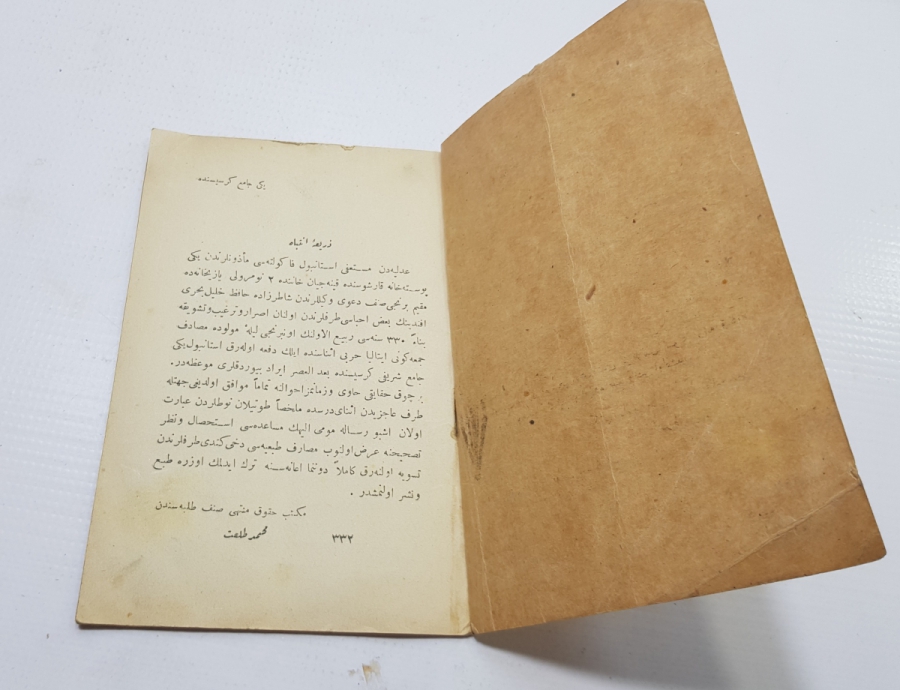 يكى جامع كرسيسنده
ذريعهٔ انتباه
عدليه‌دن مستعفى استانبول فاكولته‌سى مأذونلرندن يكى
پوسته‌خانه قارشوسنده قينه‌جيان خاننده ٢ نومرولى يازيخانه‌ده
مقيم برنجى صنف دعوى وكيللرندن شاطرزاده حافظ خليل بحرى
افندينك بعض احباسى طرفلرندن اولنان اصرار و ترغيب و تشويقه
بناءً ٣٣٠ سنه‌سى ربيع الاولنك اون‌برنجى ليلهٔ مولوده مصادف
جمعه كونى ايتاليا حربى اثناسنده ايلك دفعه اوله‌رق استانبول يكى
جامع شريفى كرسيسنده بعد العصر ايراد بيوردقلرى موعظه‌در.
بر چوق حقايقى حاوى و زمانمز احوالنه تماماً موافق اولديغى جهتله
طرف عاجزيدن اثناى درسده ملخصاً طوتيلان نوطاردن عبارت
اولان اشبو رساله مومى اليهك مساعده‌سى استحصال و نظر
تصحيحنه عرض اولنوب مصارف طبعيه‌سى دخى كندى طرفلرندن
تسويه اوله‌رق كاملاً دوننما اعانه‌سنه ترك ايدلمك اوزره طبع
و نشر اولنمشدر .
مكتب حقوق منتهى صنف طلبه‌سندن
٣٣٢ محمد طلعت